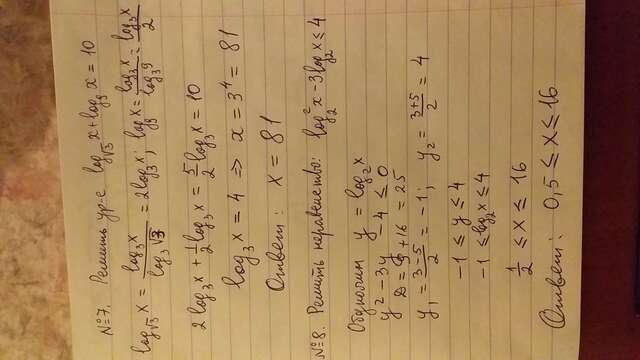 №7. Решить ур-е log_√3 x + log_9 x = 10
log_√3 x = log_3 x / log_3 √3 = 2 log_3 x; log_9 x = log_3 x / log_3 9 = log_3 x / 2
2 log_3 x + 1/2 log_3 x = 5/2 log_3 x = 10
log_3 x = 4 => x = 3^4 = 81
Ответ: x = 81
№8. Решить неравенство: log_2^2 x - 3 log_2 x ≤ 4
Обозначим y = log_2 x
y^2 - 3y - 4 ≤ 0
D = 9 + 16 = 25
y_1 = (3-5)/2 = -1; y_2 = (3+5)/2 = 4
-1 ≤ y ≤ 4
-1 ≤ log_2 x ≤ 4
1/2 ≤ x ≤ 16
Ответ: 0,5 ≤ x ≤ 16